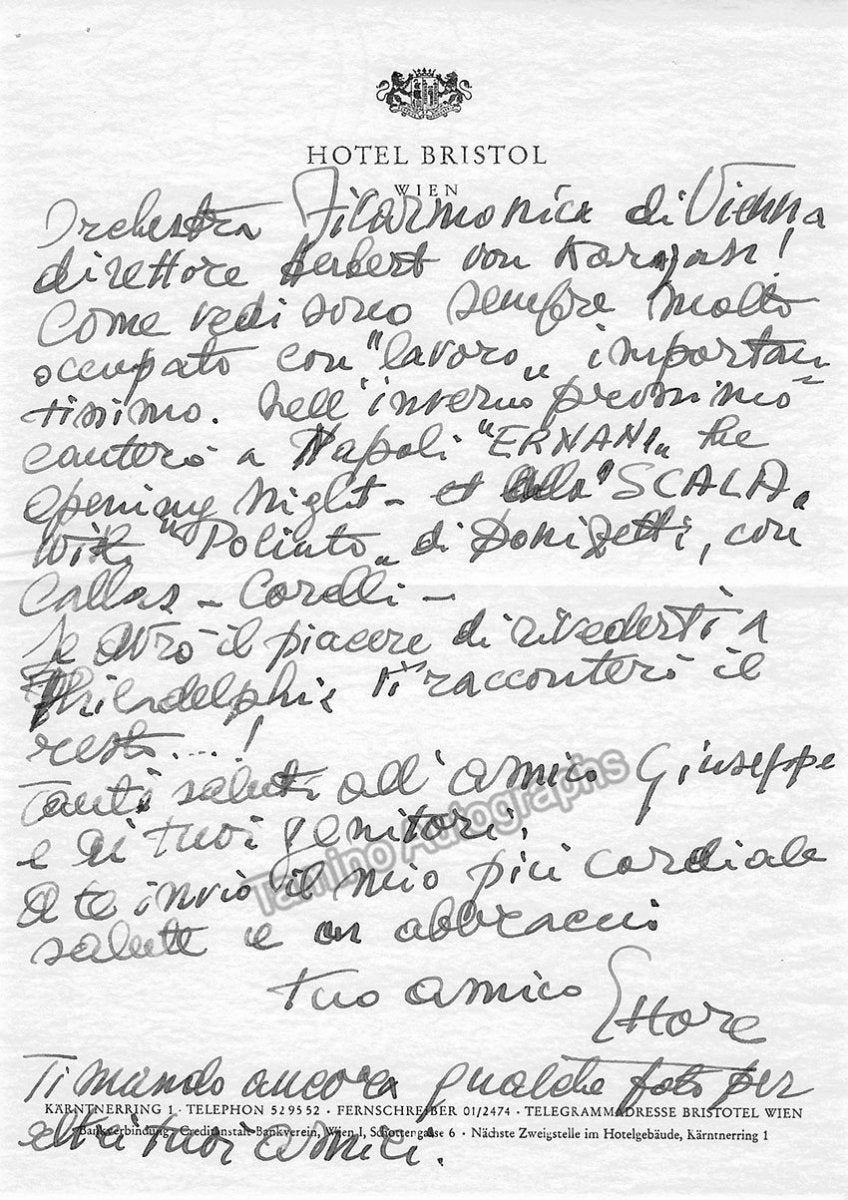 HOTEL BRISTOL
WIEN
Orchestra Filarmonica di Vienna
direttore Herbert von Karajan!
Come vedi sono sempre molto
occupato con "lavoro" importan
tissimo. Nell'inverno prossimo
canterò a Napoli "ERNANI" the
opening night - et alla "SCALA"
with "Poliuto" di Donizetti, con
Callas - Corelli -
Se avrò il piacere di rivederti a
Philadelphia ti racconterò il
resto....!
Tanti saluti all'amico Giuseppe
e ai tuoi genitori.
A te invio il mio più cordiale
salute e un abbraccio
tuo amico Ettore
Ti mando ancora qualche foto per
altri tuoi amici.
KÄRNTNERRING 1 · TELEPHON 52 95 52 · FERNSCHREIBER 01/2474 · TELEGRAMMADRESSE BRISTOTEL WIEN
Bankverbindung: Creditanstalt-Bankverein, Wien I, Schottengasse 6 · Nächste Zweigstelle im Hotelgebäude, Kärntnerring 1
Tamino Autographs